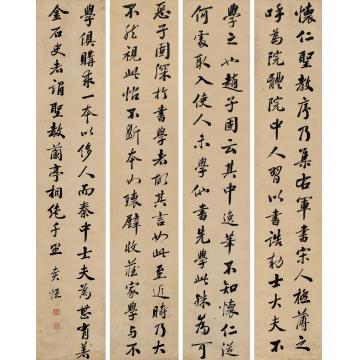 懷仁聖教序乃集右軍書宋人極薄之
呼為院體院中人習以書誥敕士大夫不
學之也趙子固云其中逸筆不知懷仁從
何處取入使人未學他書先學此殊為可
惡子固深於書學者故其言如此至近時乃大
不然視此帖不斷本如瓌璧收藏家學與不
學俱購求一本以侈人而秦中士夫為甚有著
金石史者謂聖教蘭亭相絕千里